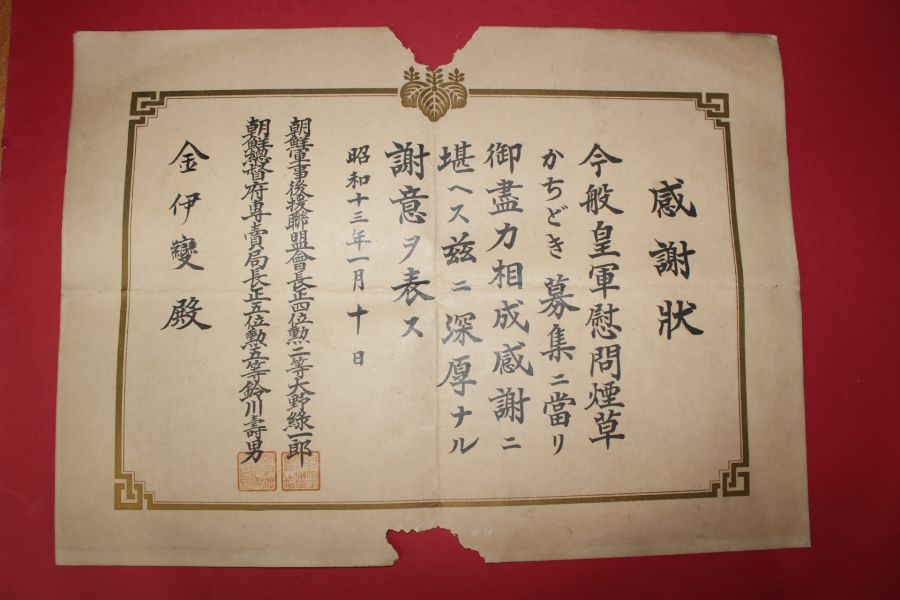 感謝状
今般皇軍慰問煙草
かちどき募集ニ當リ
御盡力相成感謝ニ
堪ヘス玆ニ深厚ナル
謝意ヲ表ス
昭和十三年一月十日
朝鮮軍事後援聯盟會長正四位勲二等大野綠一郎
朝鮮總督府專賣局長正五位勲五等鈴川壽男
金伊變殿